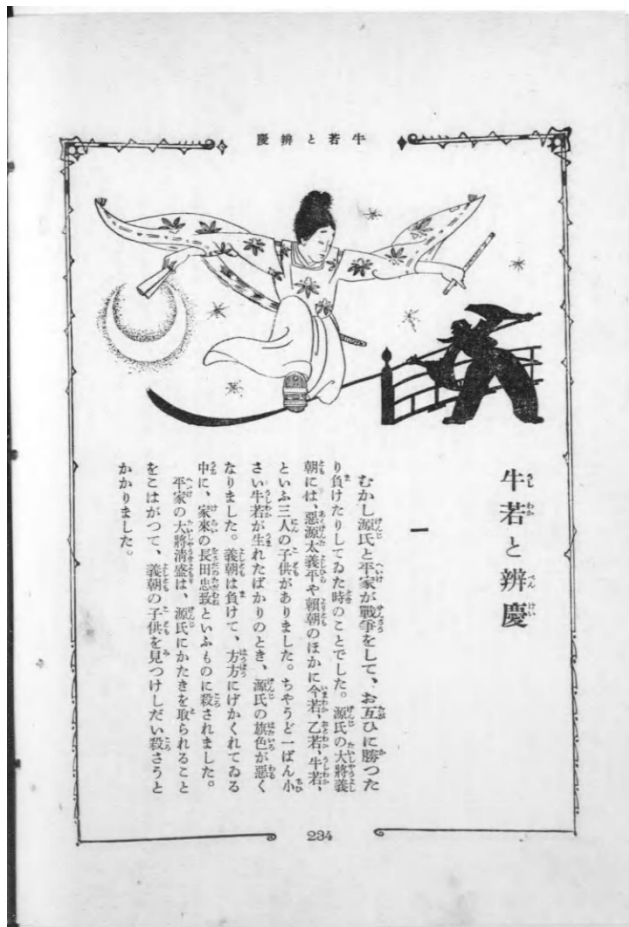 牛若と辨慶
牛若と辨慶
一
むかし源氏と平家が戰爭をして、お互ひに勝つた
り負けたりしてゐた時のことでした。源氏の大將義
朝には、惡源太義平や賴朝のほかに今若、乙若、牛若、
といふ三人の子供がありました。ちやうど一ばん小
さい牛若が生れたばかりのとき、源氏の旗色が惡く
なりました。義朝は負けて、方方にげかくれてゐる
中に、家來の長田忠致といふものに殺されました。
平家の大將淸盛は、源氏にかたきを取られること
をこはがつて、義朝の子供を見つけしだい殺さうと
かかりました。
234